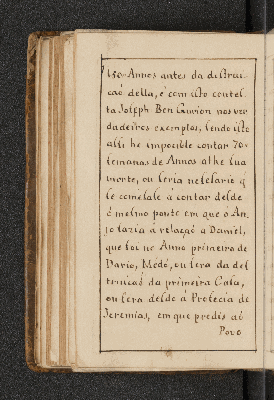 130 Annos antes da distrui-
caõ della, é com isto contes-
ta Joseph Ben Gurion nos ver
dadeiros exemplos, sendo isto
assi he impocible contar 70
semanas de Annos athe sua
morte, ou seria nesesario q̃
se comesase á contar desde
ó mesmo ponto em que ó An-
jo fazia á relaçaõ a Daniel,
que foi no Anno primeiro de
Dario, Médó, ou sera da des
truicaõ da primeira Caza,
ou sera desde á Profecia de
Jeremias, em que predis aó
Povo